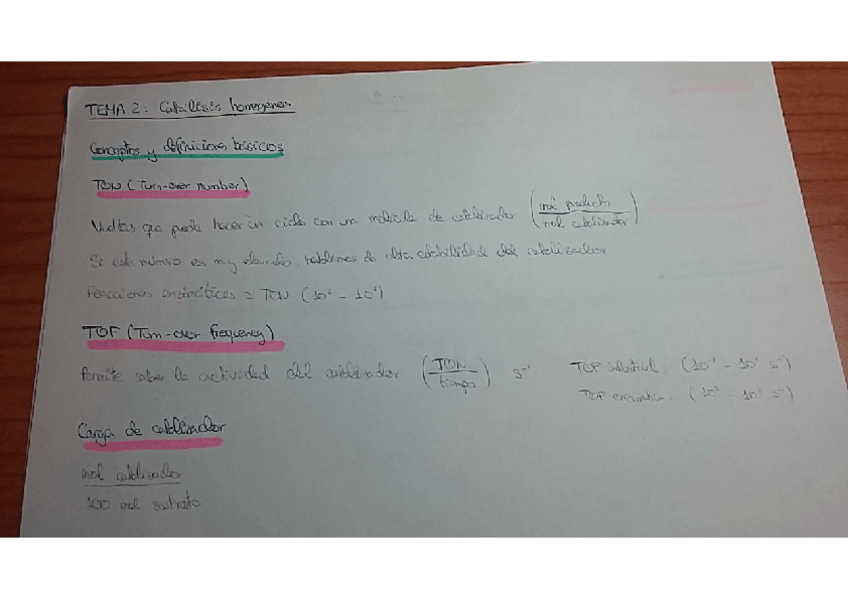 TEMA 2: Catálisis homogénea
Conceptos y definiciones básicos
TON (Turn-over number)
Vueltas que puede hacer un ciclo con una molécula de catalizador (mol producto / mol catalizador)
Si este número es muy elevado, hablamos de alta estabilidad del catalizador
Reacciones enzimáticas TON
TOF (Turn-over frequency)
Permite saber la actividad del catalizador (TON / tiempo) s⁻¹ TOF industrial:
TOF enzimática:
Carga de catalizador
mol catalizador
100 mol sustrato